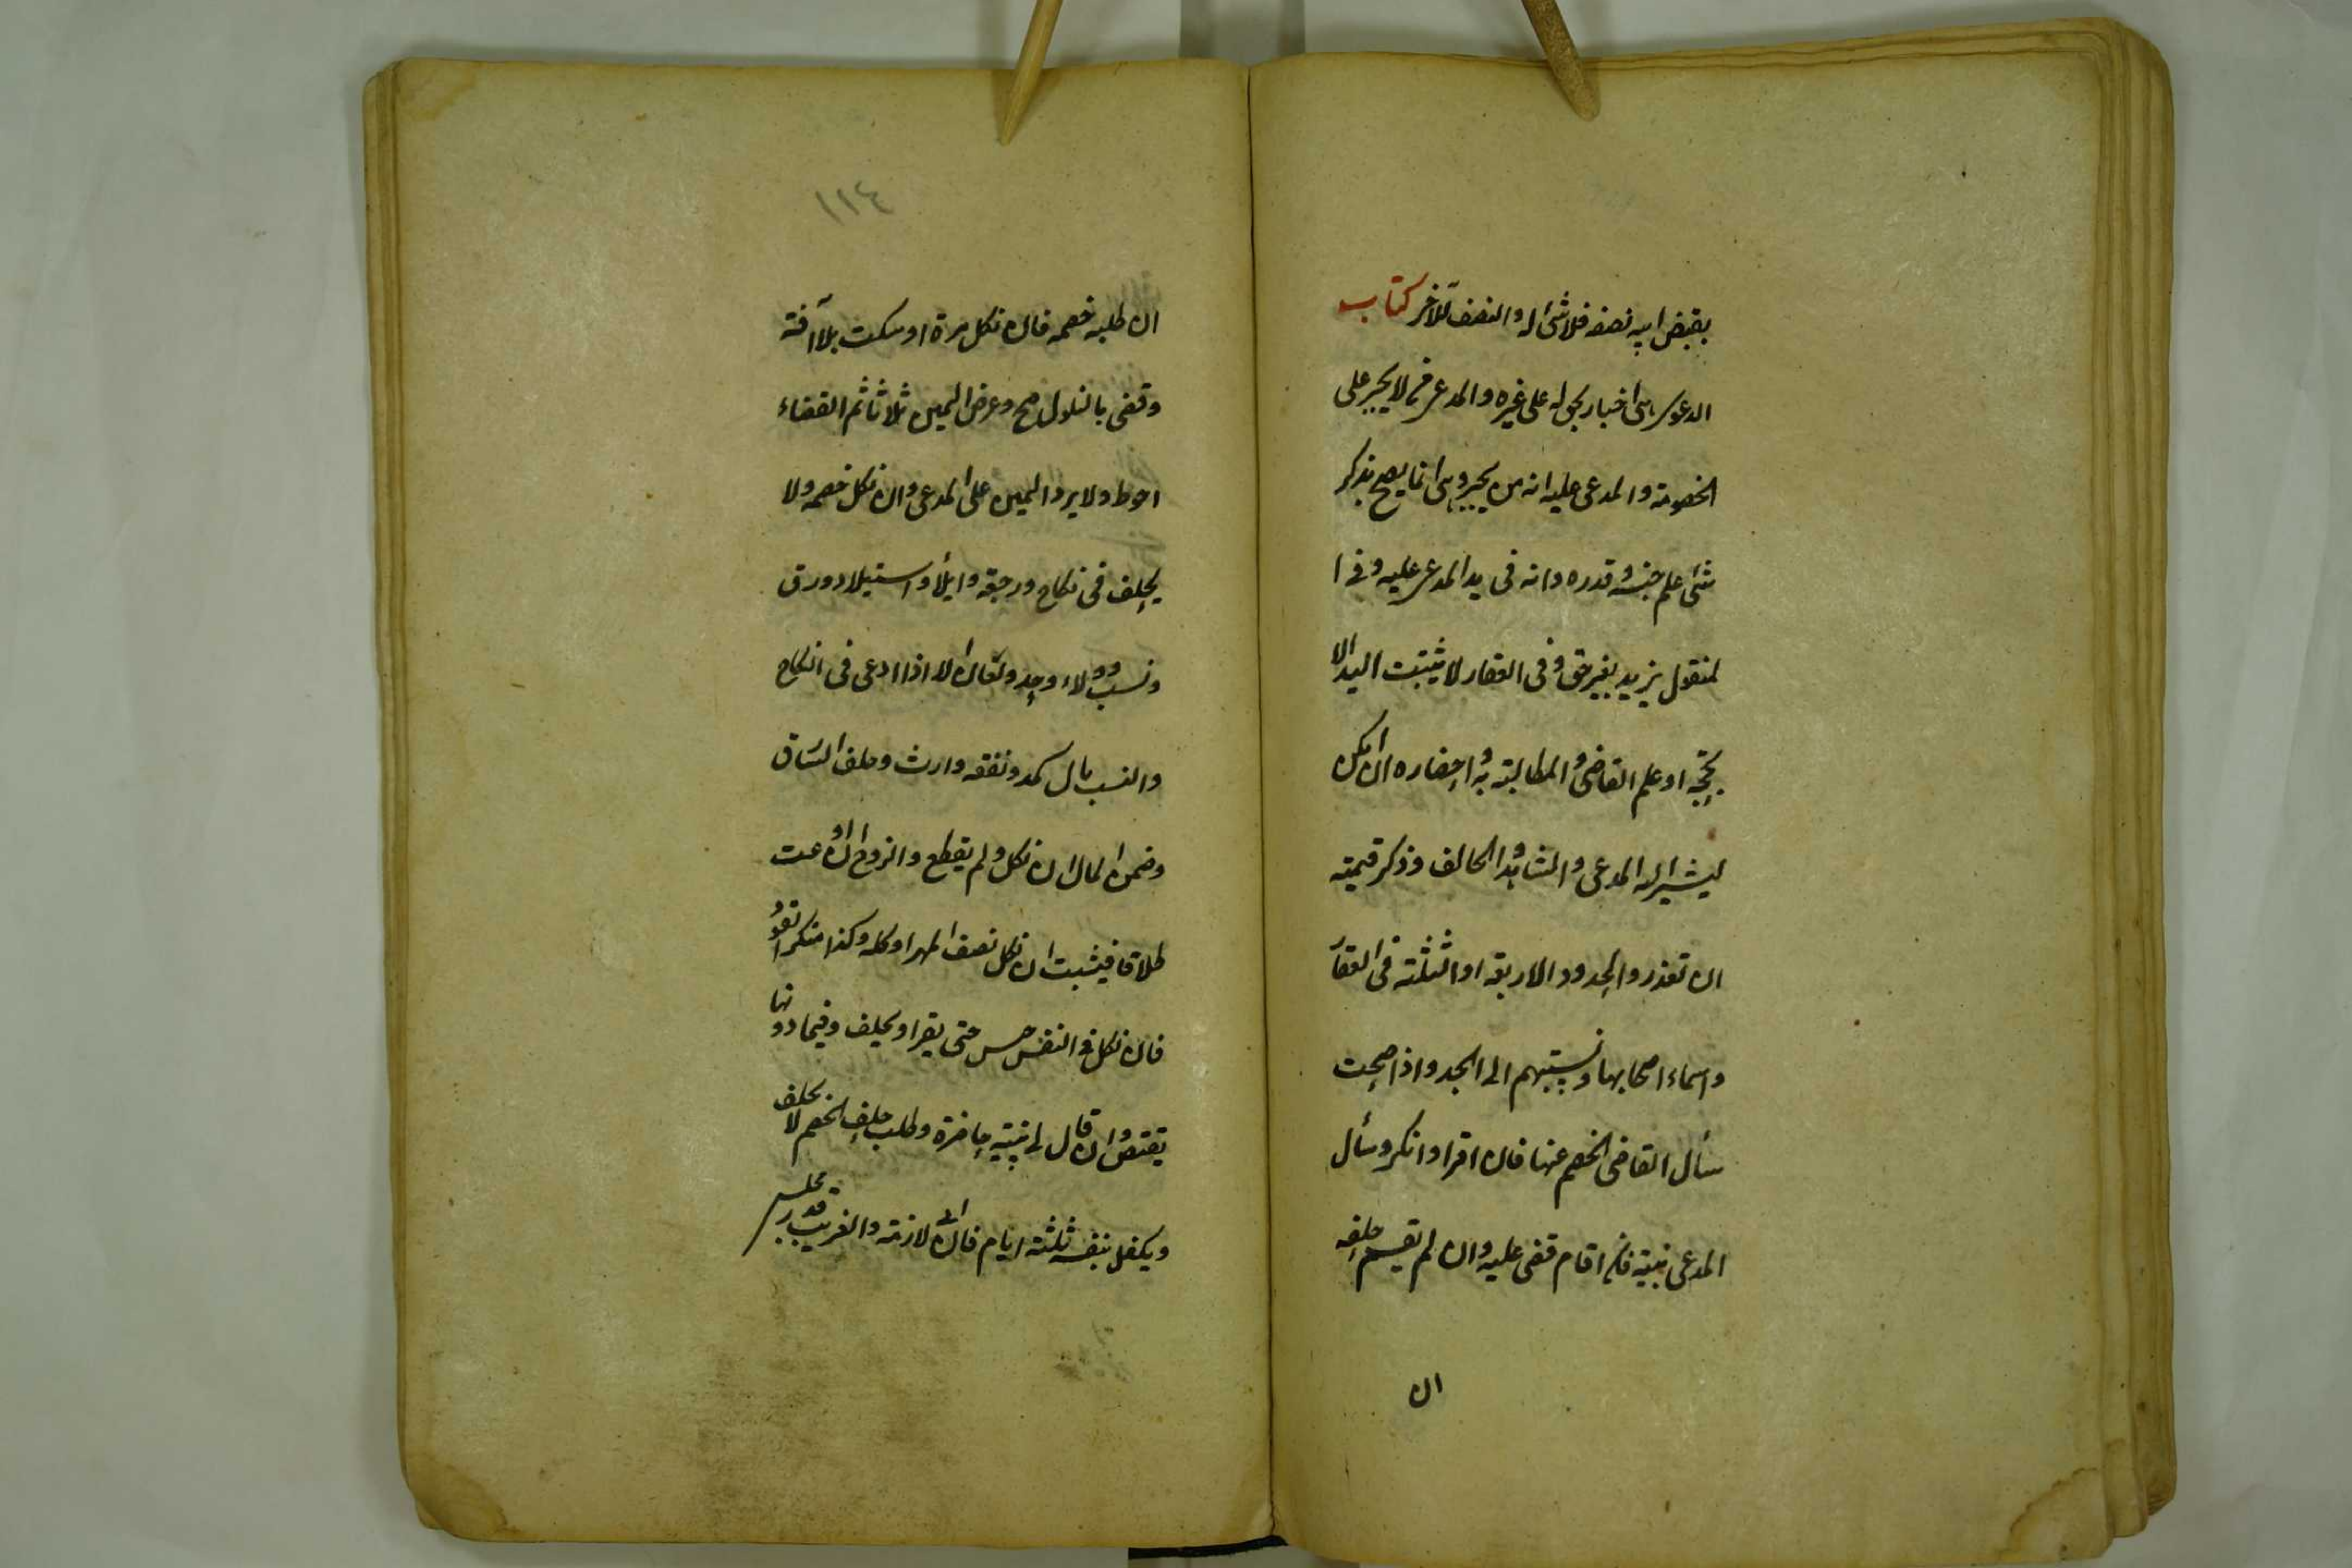 بقبض ابيه نصفه فلا شئ له والنصف للآخر كتاب
الدعوى هى اخبار بحق له على غيره والمدعى من لا يجبر على
الخصومة والمدعى عليه انه من يجبر وهى انما يصح بذكر
شئ علم جنسه وقدره وانه فى يد المدعى عليه وفى ا
لمنقول يزيد بغير حق وفى العقار لا يثبت اليد الا
بحجة او علم القاضى والمطالبة به واحضاره ان امكن
ليشير اليه المدعى والشاهد والحالف وذكر قيمته
ان تعذر والحدود الاربعة او الثلثة فى العقار
واسماء اصحابها ونسبتهم الى الجد واذا صحت
سأل القاضى الخصم عنها فان اقر او انكر وسأل
المدعى بينة فان اقام قضى عليه وان لم يقم حلفه
ان
١١٤
ان طلبه خصمه فان نكل مرة او سكت بلا آفة
وقضى بالنكول صح وعرض اليمين ثلاثا ثم القضاء
احوط ولا يرد اليمين على المدعى وان نكل خصمه ولا
يحلف فى نكاح ورجعة وايلأ واستيلاد ورق
ونسب وولاء وحد ولعان الا اذا ادعى فى النكاح
والنسب مال كمهر ونفقة وارث وحلف السارق
وضمن المال ان نكل ولم يقطع والزوج ان ادعت
طلاقا فيثبت ان نكل نصف المهر او كله وكذا منكر القود
فان نكل فى النفس حبس حتى يقر او يحلف وفيما دونها
يقتص وان قال لى بينة حاضرة وطلب حلف الخصم لا يحلف
ويكفل بنفسه ثلثة ايام فان ابى لازمه والغريب قدر مجلس